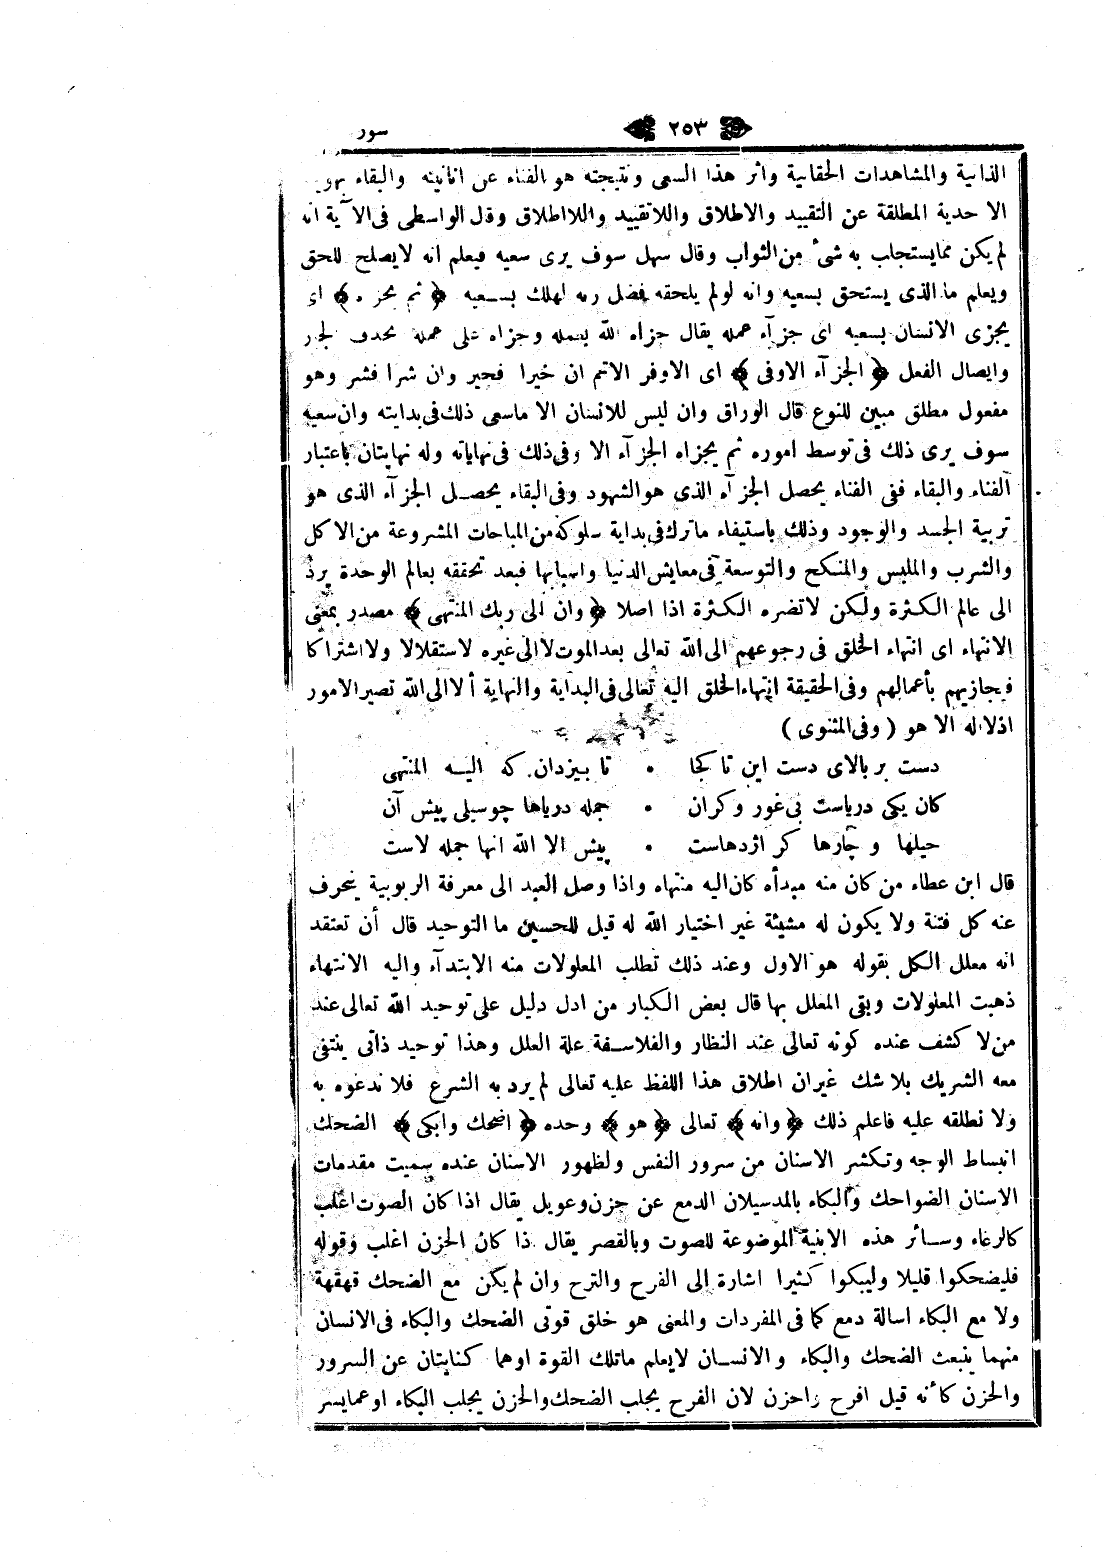 ۲۵۳
سور
الذاتية والمشاهدات الحقانية واثر هذا السعى ونتيجته هو الفناء عن انانيته والبقاء بهوية
الاحدية المطلقة عن التقييد والاطلاق واللاتقييد واللااطلاق وقال الواسطى فى الآية انه
لم يكن مما يستجلب به شئ من الثواب وقال سهل سوف يرى سعيه فيعلم انه لا يصلح للحق
ويعلم ما الذى يستحق بسعيه وانه لو لم يلحقه فضل ربه لهلك بسعيه ﴿ ثم يجزاه ﴾ اى
يجزى الانسان بسعيه اى جزآء عمله يقال جزاه الله بعمله وجزاه على عمله بحذف الجار
وايصال الفعل ﴿ الجزآء الاوفى ﴾ اى الاوفر الاتم ان خيرا فخير وان شرا فشر وهو
مفعول مطلق مبين للنوع قال الوراق وان ليس للانسان الا ماسعى ذلك فى بدايته وان سعيه
سوف يرى ذلك فى توسط اموره ثم يجزاه الجزآء الاوفى ذلك فى نهاياته وله نهايتان باعتبار
الفناء والبقاء ففى الفناء يحصل الجزآء الذى هو الشهود وفى البقاء يحصل الجزآء الذى هو
تربية الجسد والوجود وذلك باستيفاء ماترك فى بداية سلوكه من المباحات المشروعة من الاكل
والشرب والملبس والمنكح والتوسعة فى معايش الدنيا واسبابها فبعد تحققه بعالم الوحدة يرد
الى عالم الكثرة ولكن لاتضره الكثرة اذا اصلا ﴿ وان الى ربك المنتهى ﴾ مصدر بمعنى
الانتهاء اى انتهاء الخلق فى رجوعهم الى الله تعالى بعد الموت لا الى غيره لا استقلالا ولا اشتراكا
فيجازيهم بأعمالهم وفى الحقيقة انتهاء الخلق اليه تعالى فى البداية والنهاية ألا الى الله تصير الامور
اذلا اله الا هو ( وفى المثنوى )
دست بر بالاى دست اين تا كجا • تا بيزدان كه اليه المنتهى
كان يكى درياست بى غور وكران • جمله درياها چوسيلى پيش آن
حيلها و چارها كر اژدهاست • پيش الا الله انها جمله لاست
قال ابن عطاء من كان منه مبدأه كان اليه منتهاه واذا وصل العبد الى معرفة الربوبية ينحرف
عنه كل فتنة ولا يكون له مشيئة غير اختيار الله له قيل للحسين ما التوحيد قال أن تعتقد
انه معلل الكل بقوله هو الاول وعند ذلك تطلب المعلولات منه الابتدآء واليه الانتهاء
ذهبت المعلولات وبقى المعلل بها قال بعض الكبار من ادل دليل على توحيد الله تعالى عند
من لا كشف عنده كونه تعالى عند النظار والفلاسفة علة العلل وهذا توحيد ذاتى ينتفى
معه الشريك بلا شك غير ان اطلاق هذا اللفظ عليه تعالى لم يرد به الشرع فلا ندعوه به
ولا نطلقه عليه فاعلم ذلك ﴿ وانه ﴾ تعالى ﴿ هو ﴾ وحده ﴿ اضحك وابكى ﴾ الضحك
انبساط الوجه وتكشر الاسنان من سرور النفس ولظهور الاسنان عنده سميت مقدمات
الاسنان الضواحك والبكاء بالمد سيلان الدمع عن حزن وعويل يقال اذا كان الصوت اغلب
كالرغاء وسائر هذه الابنية الموضوعة للصوت وبالقصر يقال ذا كان الحزن اغلب وقوله
فليضحكوا قليلا وليبكوا كثيرا اشارة الى الفرح والترح وان لم يكن مع الضحك قهقهة
ولا مع البكاء اسالة دمع كما فى المفردات والمعنى هو خلق قوتى الضحك والبكاء فى الانسان
منهما ينبعث الضحك والبكاء والانسان لايعلم ماتلك القوة اوهما كنايتان عن السرور
والحزن كأنه قيل افرح واحزن لان الفرح يجلب الضحك والحزن يجلب البكاء اوعما يسر